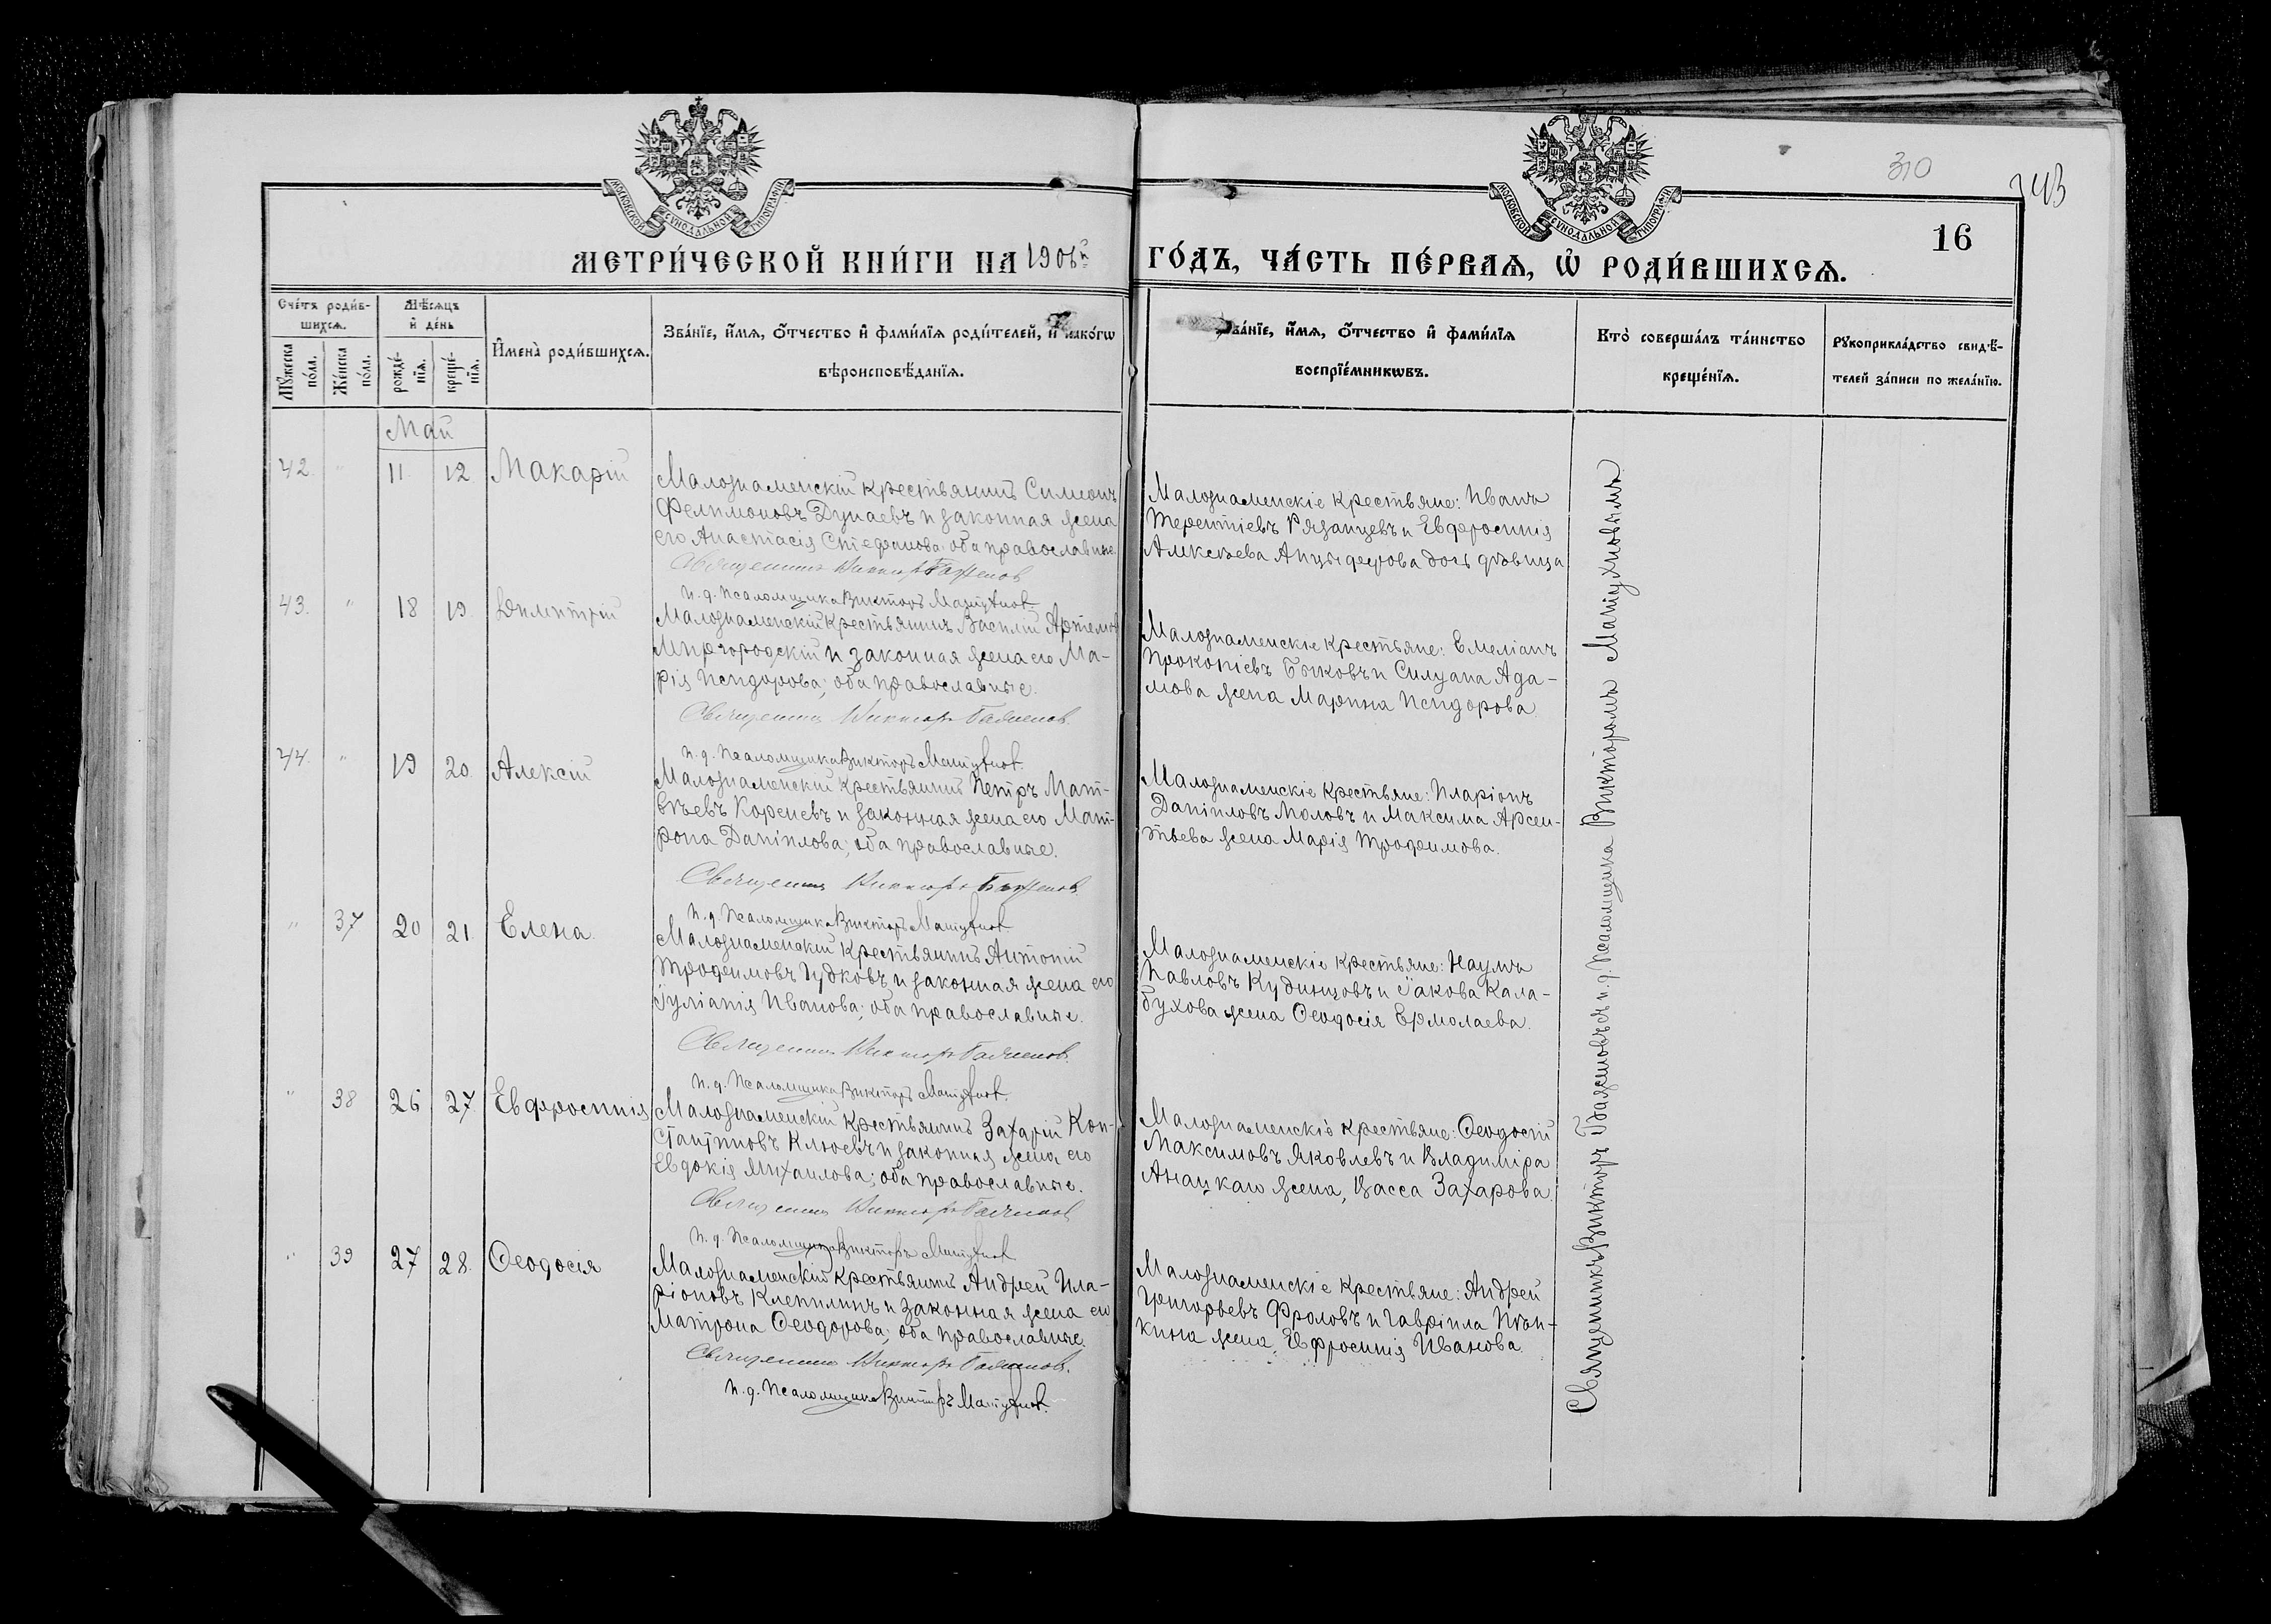 310
343
16
МОСКОВСКОЙ СУНОДАЛЬНОЙ ТИПОГРАФІИ
МОСКОВСКОЙ СУНОДАЛЬНОЙ ТИПОГРАФІИ
МЕТРИ́ЧЕСКОЙ КНИ́ГИ НА 1906й ГО́ДЪ, ЧА́СТЬ ПЕ́РВАѦ, Ѡ҆ РОДИ́ВШИХСѦ.
Сче́тъ роди́в-
шихсѧ.
Мꙋ́жеска по́ла.
Же́нска по́ла.
Мѣ́сѧцъ
и҆ де́нь
рожде́-нїѧ.
креще́-нїѧ.
И҆мена̀ роди́вшихсѧ.
Зва́нїе, и҆́мѧ, ѻ҆́тчество и҆ фами́лїѧ роди́телей, и҆ како́гѡ
вѣроисповѣ́данїѧ.
Зва́нїе, и҆́мѧ, ѻ҆́тчество и҆ фами́лїѧ
воспрїе́мникѡвъ.
Кто̀ соверша́лъ та́инство
креще́нїѧ.
Рꙋкоприкла́дство свидѣ́-
телей за́писи по жела́нїю.
Май
42. " 11. 12 Макарій
Малознаменскій крестьянинъ Симеонъ
Филимоновъ Дунаевъ и законная жена
его Анастасія Стефанова; оба православные.
Священникъ Викторъ Баженов
и. д. Псаломщика Викторъ Матухнов.
Малознаменскіе крестьяне: Иванъ
Терентіевъ Рязанцевъ и Евфросинія
Алексѣева Анцыферова дочь дѣвица
43. " 18 19 Димитрій
Малознаменскій крестьянинъ Василій Артемов
Миргородскій и законная жена его Ма-
рія Исидорова; оба православные.
Священникъ Викторъ Баженов.
и. д. Псаломщика Викторъ Матухнов.
Малознаменскіе крестьяне: Емеліанъ
Прокопіевъ Быковъ и Силуана Ада-
мова жена Марина Исидорова
44. " 19 20. Алексій
Малознаменскій крестьянинъ Петръ Мат-
вѣевъ Кореневъ и законная жена его Мат-
рона Даніилова; оба православные.
Священникъ Викторъ Баженов
и. д. Псаломщика Викторъ Матухнов.
Малознаменскіе крестьяне: Иларіонъ
Даніиловъ Моловъ и Максима Арсен-
тьева жена Марія Трофимова.
" 37 20 21. Елена.
Малознаменскій крестьянинъ Антоній
Трофимовъ Гудковъ и законная жена его
Іуліанія Иванова; оба православные.
Священникъ Викторъ Баженов.
и. д. Псаломщика Викторъ Матухнов.
Малознаменскіе крестьяне: Наумъ
Павловъ Кудинцовъ и Іакова Кала-
бухова жена Ѳеодосія Ермолаева.
" 38 26 27 Евфросинія
Малознаменскій крестьянинъ Захарій Кон-
стантиновъ Клюевъ и законная жена его
Евдокія Михаилова; оба православные.
Священникъ Викторъ Баженов
и. д. Псаломщика Викторъ Матухнов
Малознаменскіе крестьяне: Ѳеодосій
Максимовъ Яковлевъ и Владиміра
Анацкаго жена, Васса Захарова.
" 39 27 28. Ѳеодосія
Малознаменскій крестьянинъ Андрей Ила-
ріоновъ Клепилинъ и законная жена его
Матрона Ѳеодорова; оба православные.
Священникъ Викторъ Баженов.
и. д. Псаломщика Викторъ Матухнов.
Малознаменскіе крестьяне: Андрей
Григорьевъ Фроловъ и Гавріила Пѣн-
кина жена, Евфросинія Иванова
Священникъ Викторъ Баженовъ и и. д. Псаломщика Викторомъ Матухновымъ